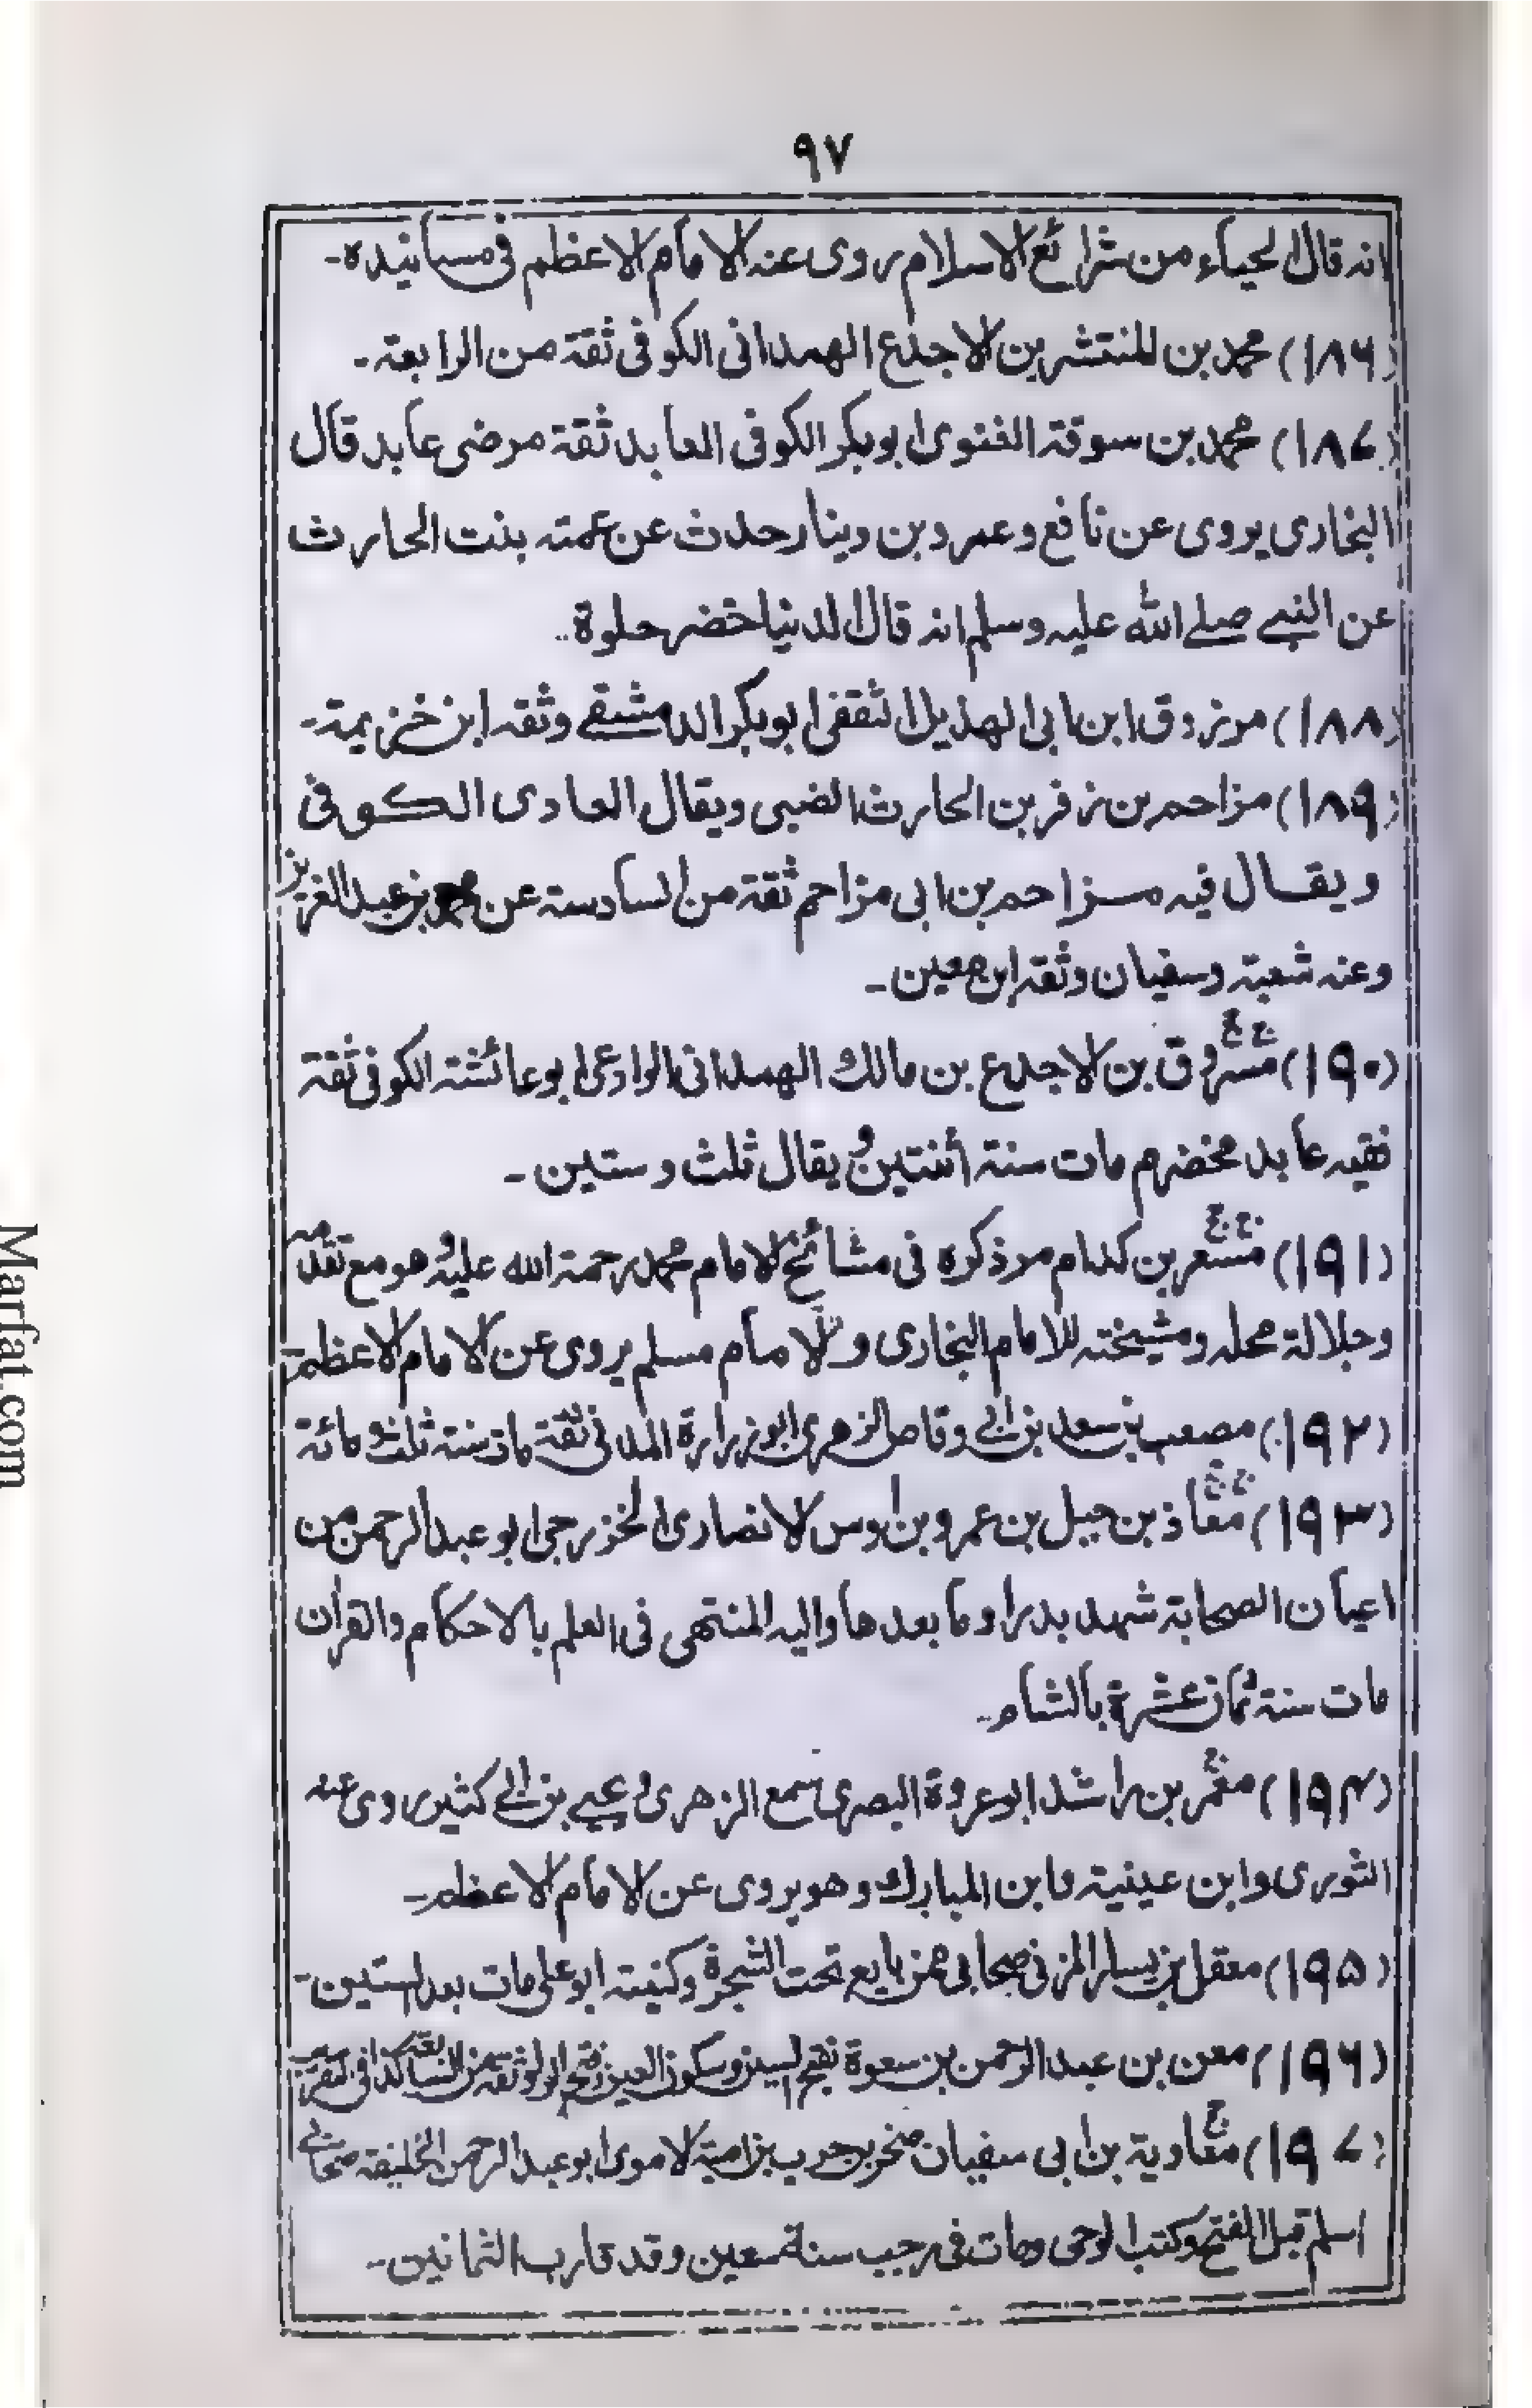 ٩٧
انه قال الحياء من شرائع الاسلام روى عنه الامام الاعظم فى مسانيده۔
(١٨٦) محمد بن المنتشر بن الاجدع الهمدانى الكوفى ثقة من الرابعة۔
(١٨٧) محمد بن سوقة الغنوى ابوبكر الكوفى العابد ثقة مرضى عابد قال
البخارى يروى عن نافع وعمرو بن دينار حدث عن عمته بنت الحارث
عن النبى صلى الله عليه وسلم انه قال الدنيا خضر حلوة۔
(١٨٨) مرزوق ابن ابى الهذيل الثقفى ابوبكر الدمشقى وثقه ابن خزيمة۔
(١٨٩) مزاحم بن زفر بن الحارث الضبى ويقال العادى الكوفى
ويقال فيه مزاحم بن ابى مزاحم ثقة من السادسة عن محمد بن عبد العزيز
وعنه شعبة وسفيان وثقه ابن معين۔
(١٩٠) مسروق بن الاجدع بن مالك الهمدانى الوادعى ابو عائشة الكوفى ثقة
فقيه عابد مخضرم مات سنة اثنتين ويقال ثلث وستين۔
(١٩١) مسعر بن كدام مر ذكره فى مشائخ الامام محمد رحمة الله عليه وهو مع تقدمه
وجلالة محله ومشيخته للامام البخارى وللامام مسلم يروى عن الامام الاعظم
(١٩٢) مصعب بن سعد بن ابى وقاص الزهرى ابو زرارة المدنى ثقة مات سنة ثلث ومائة
(١٩٣) معاذ بن جبل بن عمرو بن اوس الانصارى الخزرجى ابو عبد الرحمن من
اعيان الصحابة شهد بدرا وما بعدها واليه المنتهى فى العلم بالاحكام والقران
مات سنة ثمان عشرة بالشام۔
(١٩٤) معمر بن راشد ابو عروة البصرى سمع الزهرى ويحيى بن ابى كثير روى عنه
الثورى وابن عينية وابن المبارك وهو يروى عن الامام الاعظم۔
(١٩٥) معقل بن يسار المزنى صحابى ممن بايع تحت الشجرة وكنيته ابو على مات بعد الستين۔
(١٩٦) معن بن عبد الرحمن بن سعوة بفتح السين وسكون العين وفتح الواو ثقة من السابعة كذا فى التقريب
(١٩٧) معاوية بن ابى سفيان صخر بن حرب بن امية الاموى ابو عبد الرحمن الخليفة صحابى
اسلم قبل الفتح وكتب الوحى ومات فى رجب سنة ستعين وقد قارب الثمانين۔
Marfat.com